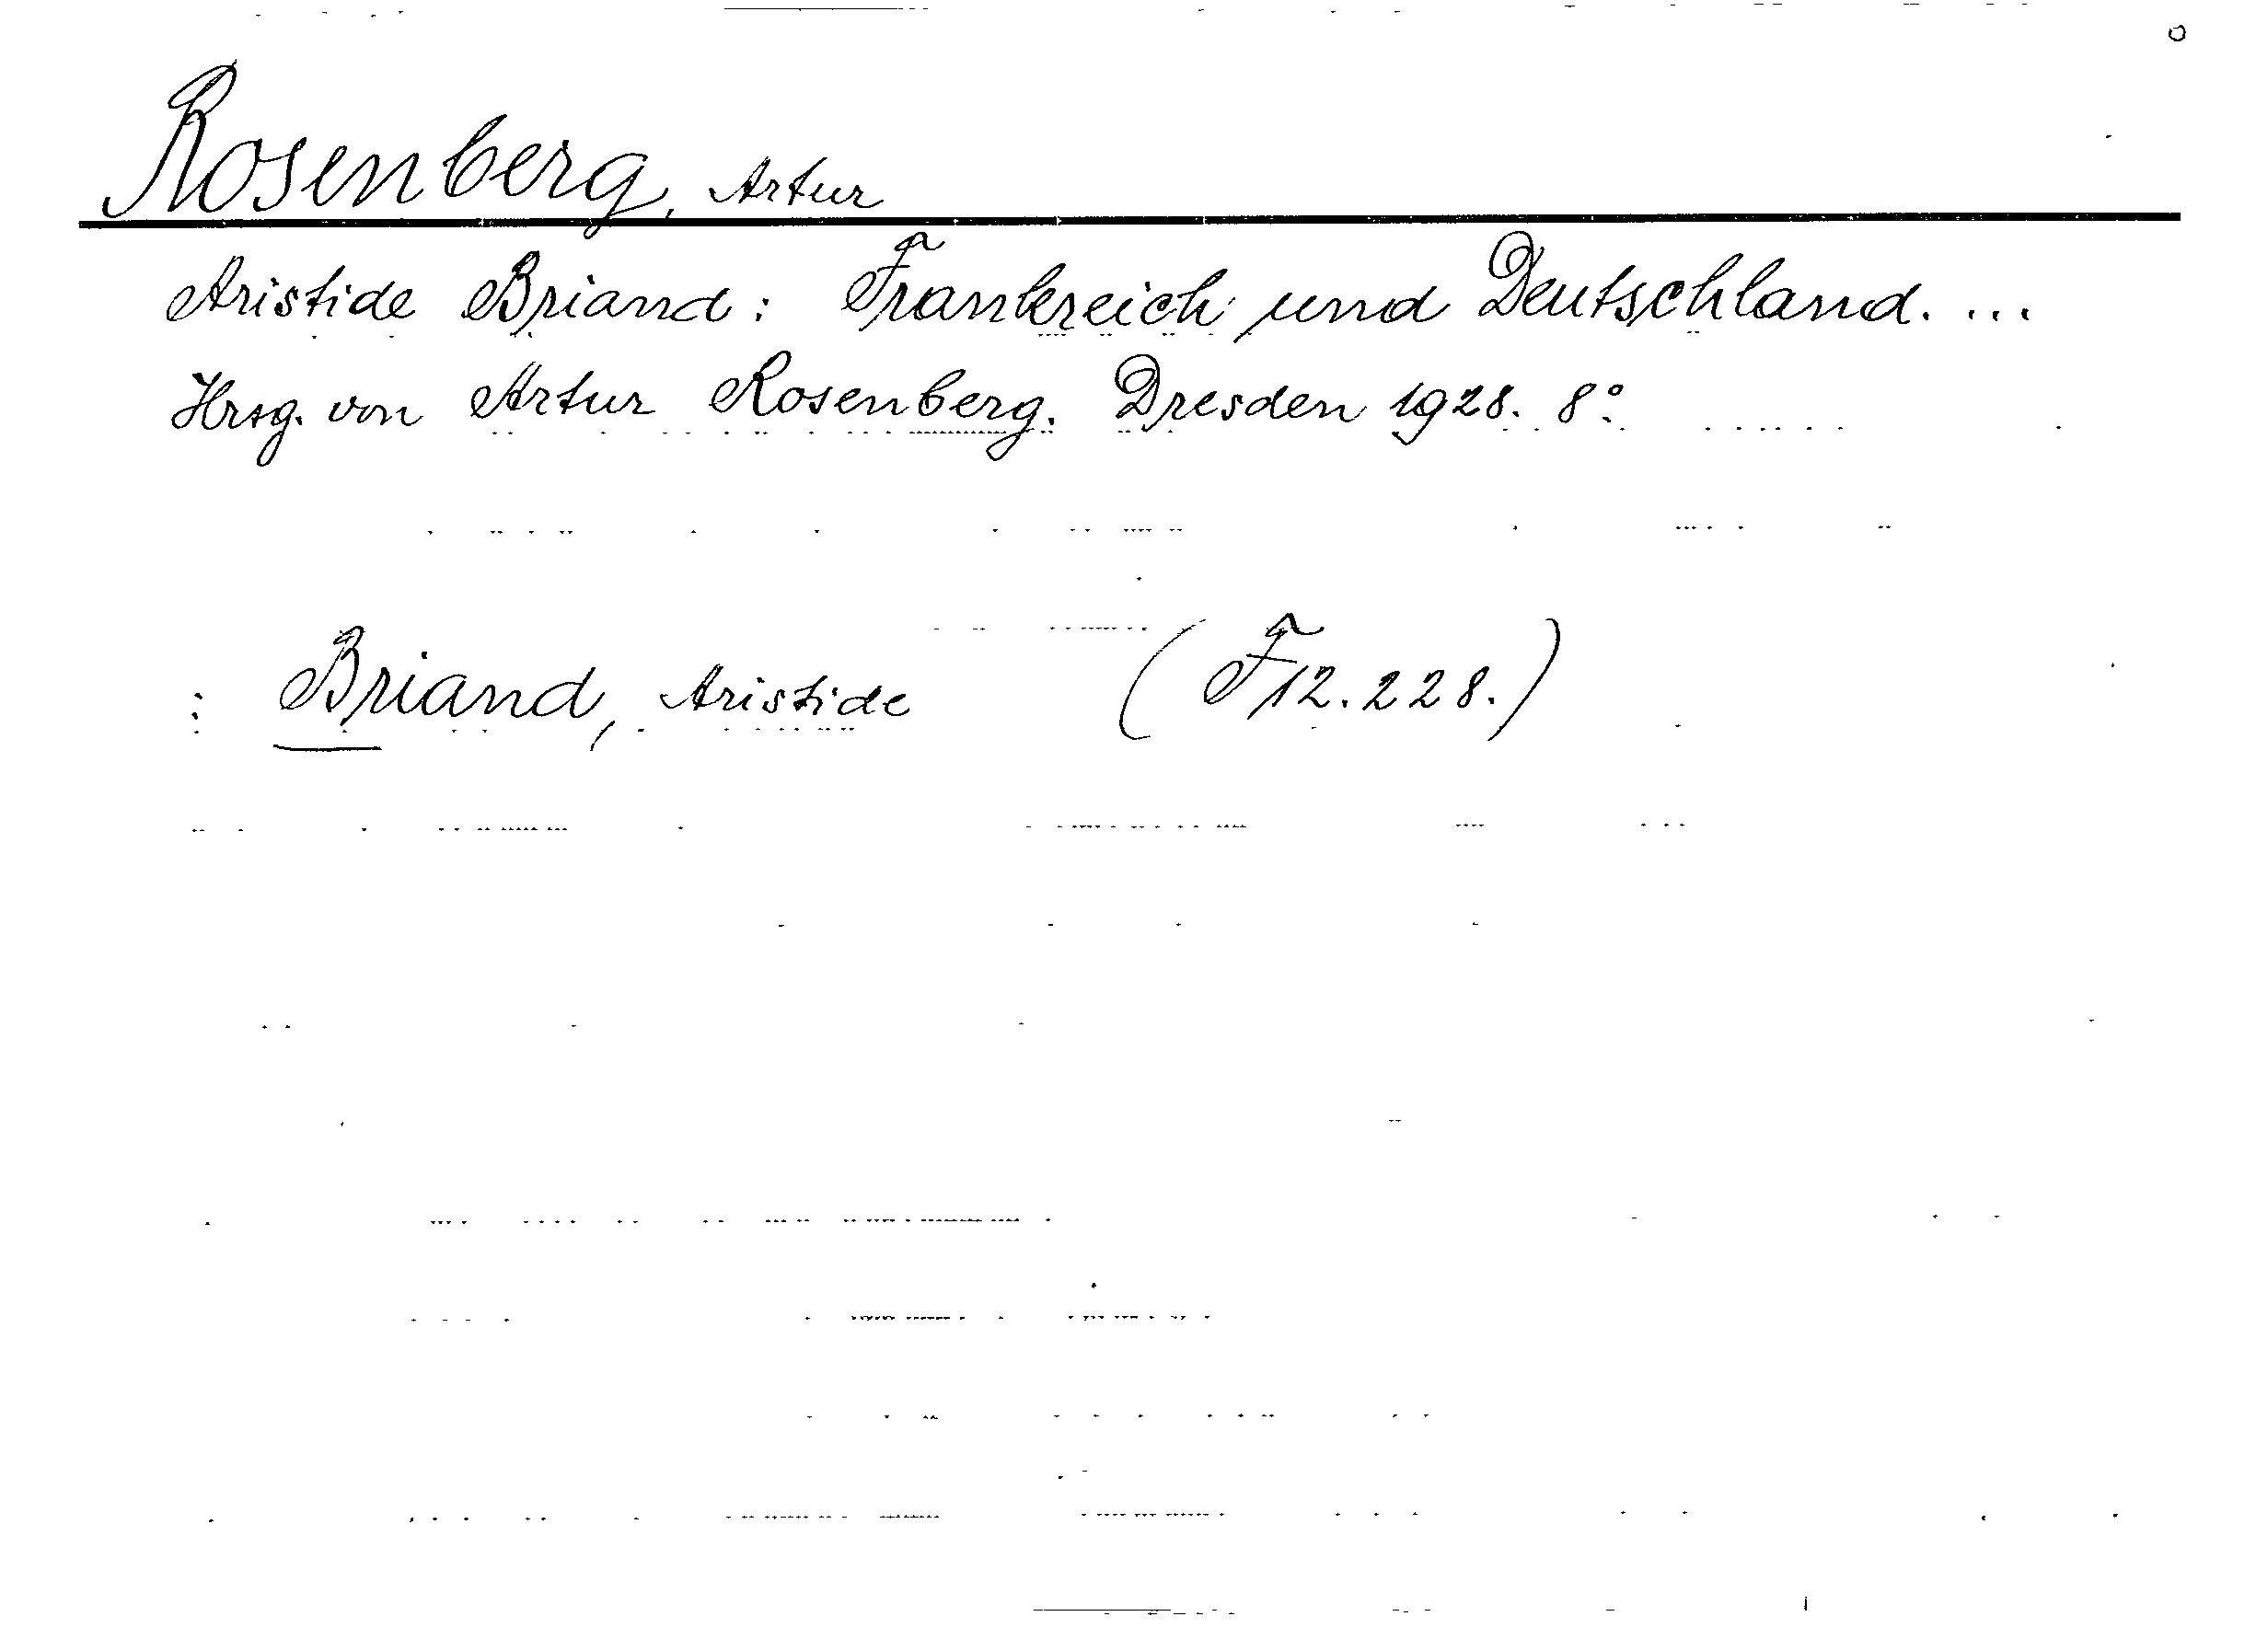 Rosenberg, Artur
Aristide Briand: Frankreich und Deutschland. ...
Hrsg. von Artur Rosenberg. Dresden 1928. 8°.
: Briand, Aristide (F 12.228.)